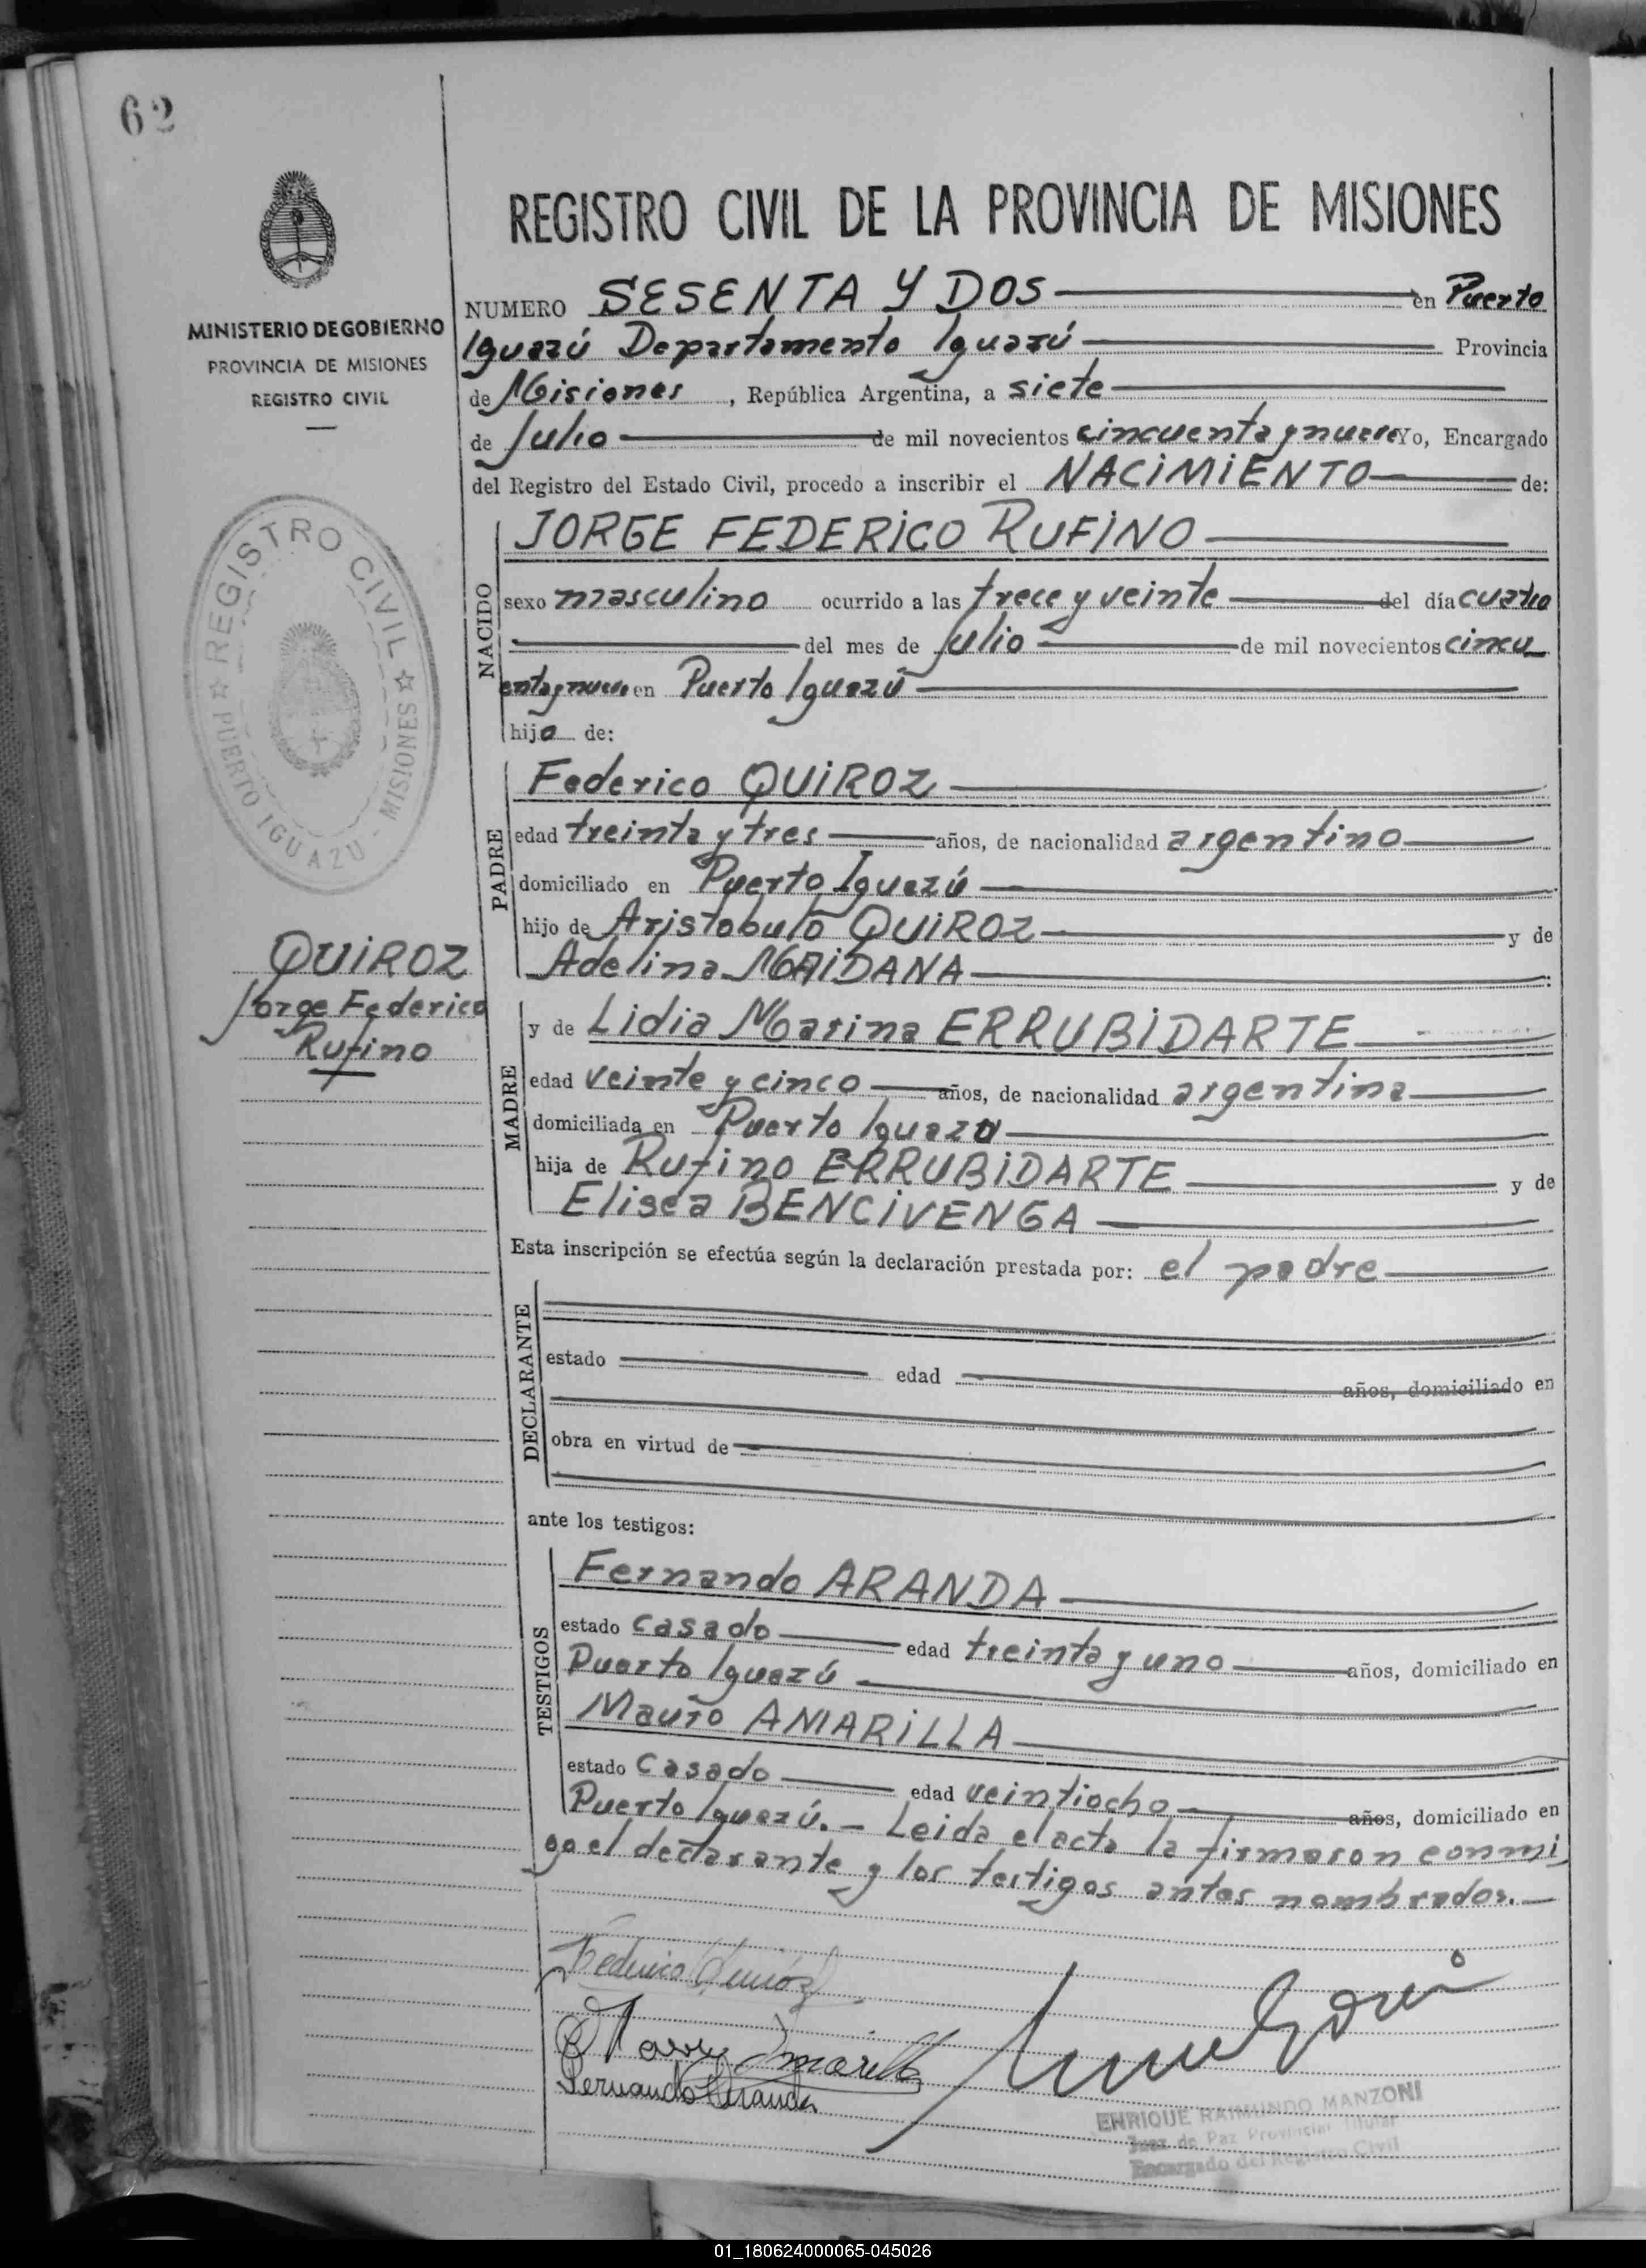 62
MINISTERIO DE GOBIERNO
PROVINCIA DE MISIONES
REGISTRO CIVIL
REGISTRO CIVIL
PUERTO IGUAZU - MISIONES
QUIROZ
Jorge Federico
Rufino
REGISTRO CIVIL DE LA PROVINCIA DE MISIONES
NUMERO SESENTA Y DOS en Puerto
Iguazú Departamento Iguazú Provincia
de Misiones, República Argentina, a siete
de Julio de mil novecientos cincuenta y nueve Yo, Encargado
del Registro del Estado Civil, procedo a inscribir el NACIMIENTO de:
NACIDO
JORGE FEDERICO RUFINO
sexo masculino ocurrido a las trece y veinte del día cuatro
del mes de julio de mil novecientos cincu
enta y nueve en Puerto Iguazú
hijo de:
PADRE
Federico QUIROZ
edad treinta y tres años, de nacionalidad argentino
domiciliado en Puerto Iguazú
hijo de Aristobulo QUIROZ y de
Adelina MAIDANA
MADRE
y de Lidia Marina ERRUBIDARTE
edad veinte y cinco años, de nacionalidad argentina
domiciliada en Puerto Iguazu
hija de Rufino ERRUBIDARTE y de
Elisea BENCIVENGA
Esta inscripción se efectúa según la declaración prestada por: el padre
DECLARANTE
estado edad años, domiciliado en
obra en virtud de
ante los testigos:
TESTIGOS
Fernando ARANDA
estado casado edad treinta y uno años, domiciliado en
Puerto Iguazú
Mauro AMARILLA
estado casado edad veintiocho años, domiciliado en
Puerto Iguazú. - Leida el acta la firmaron conmi
go el declarante y los testigos antes nombrados.
Federico Quiroz
Mauro Amarilla
Fernando Aranda
ENRIQUE RAIMUNDO MANZONI
Juez de Paz Provincial Titular
Encargado del Registro Civil
01_180624000065-045026